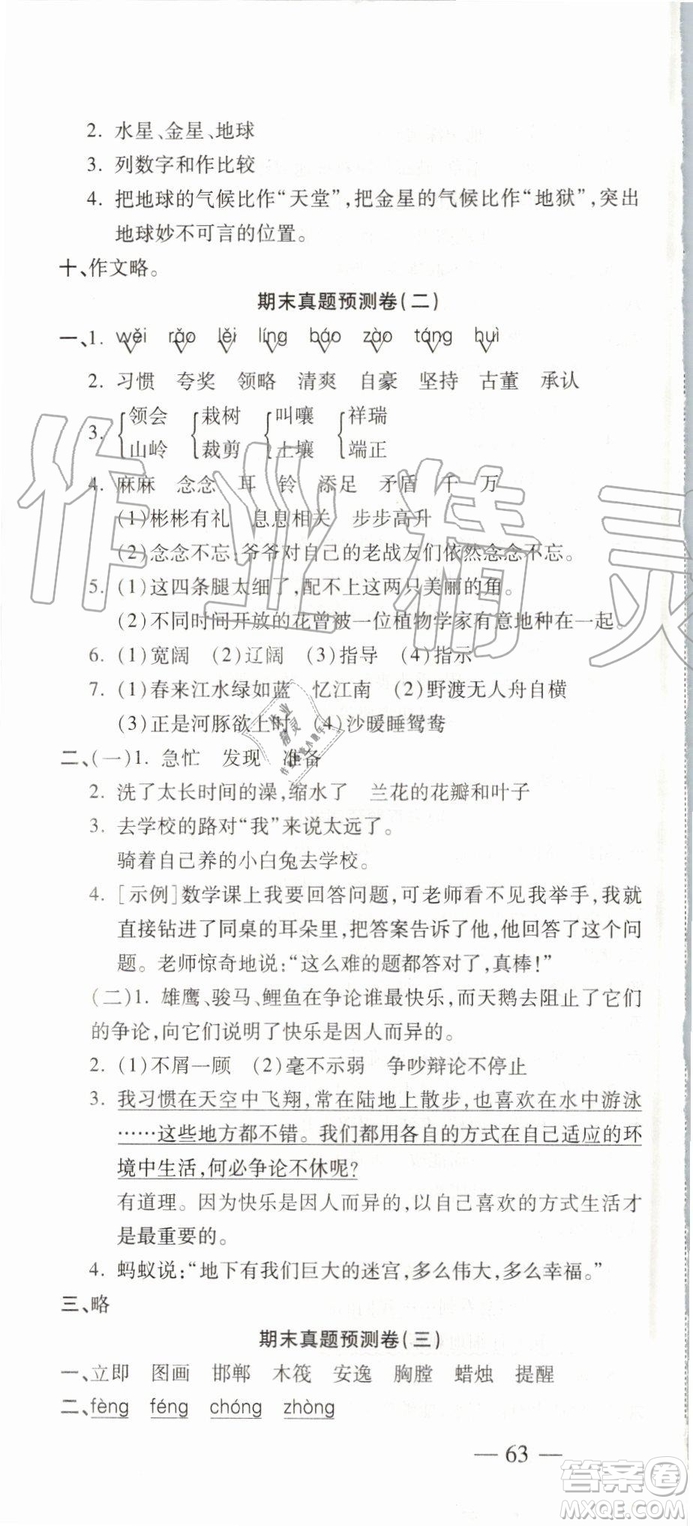 2. 水星、金星、地球
3. 列数字和作比较
4. 把地球的气候比作“天堂”，把金星的气候比作“地狱”，突出
地球妙不可言的位置。
十、作文略。
期末真题预测卷(二)
一、1. wěi rǎo lěi líng báo zào táng huì
2. 习惯 夸奖 领略 清爽 自豪 坚持 古董 承认
3. {领会 山岭 {栽树 裁剪 {叫嚷 土壤 {祥瑞 端正
4. 麻麻 念念 耳 铃 添足 矛盾 千 万
(1)彬彬有礼 息息相关 步步高升
(2)念念不忘:爷爷对自己的老战友们依然念念不忘。
5. (1)这四条腿太细了，配不上这两只美丽的角。
(2)不同时间开放的花曾被一位植物学家有意地种在一起。
6. (1)宽阔 (2)辽阔 (3)指导 (4)指示
7. (1)春来江水绿如蓝 忆江南 (2)野渡无人舟自横
(3)正是河豚欲上时 (4)沙暖睡鸳鸯
二、(一)1. 急忙 发现 准备
2. 洗了太长时间的澡，缩水了 兰花的花瓣和叶子
3. 去学校的路对“我”来说太远了。
骑着自己养的小白兔去学校。
4. [示例]数学课上我要回答问题，可老师看不见我举手，我就
直接钻进了同桌的耳朵里，把答案告诉了他，他回答了这个问
题。老师惊奇地说：“这么难的题都答对了，真棒！”
(二)1. 雄鹰、骏马、鲤鱼在争论谁最快乐，而天鹅去阻止了它们
的争论，向它们说明了快乐是因人而异的。
2. (1)不屑一顾 (2)毫不示弱 争吵辩论不停止
3. 我习惯在天空中飞翔，常在陆地上散步，也喜欢在水中游泳
……这些地方都不错。我们都用各自的方式在自己适应的环
境中生活，何必争论不休呢？
有道理。因为快乐是因人而异的，以自己喜欢的方式生活才
是最重要的。
4. 蚂蚁说：“地下有我们巨大的迷宫，多么伟大，多么幸福。”
三、略
期末真题预测卷(三)
一、立即 图画 邯郸 木筏 安逸 胸膛 蜡烛 提醒
二、fèng féng chóng zhòng
— 63 —
作业精灵
答案圈
MXQE.COM